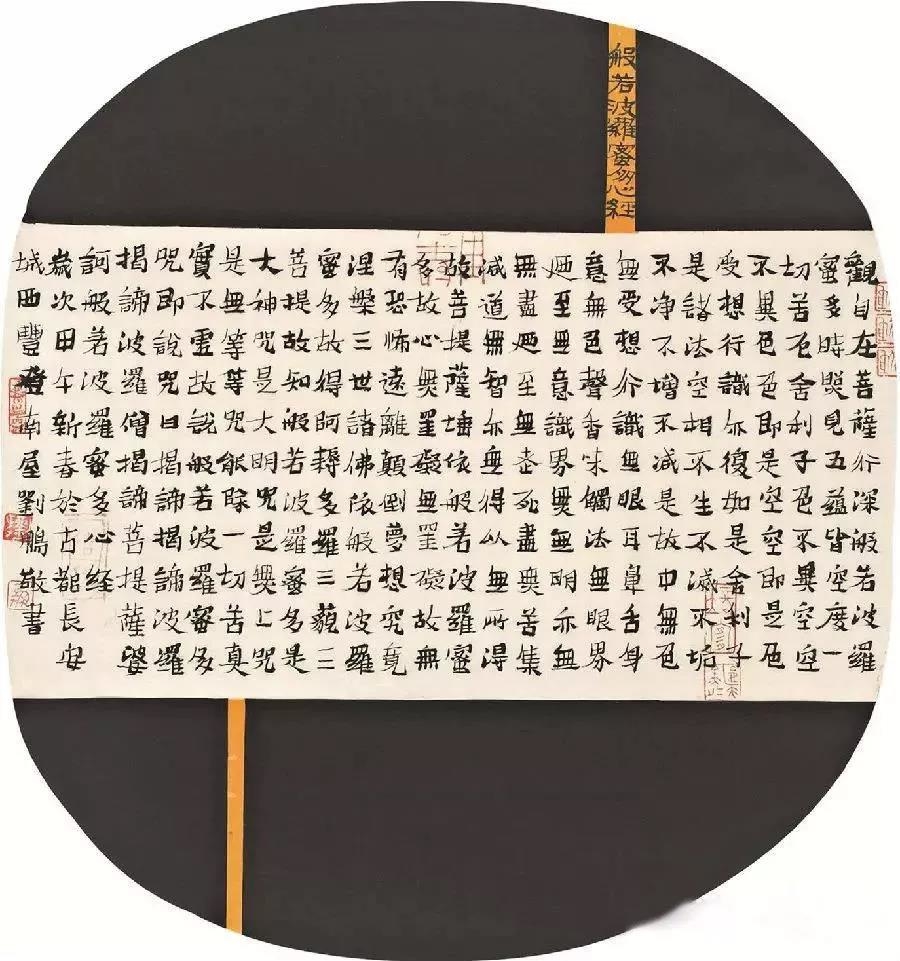 般若波羅蜜多心經
觀自在菩薩行深般若波羅
蜜多時照見五蘊皆空度一
切苦厄舍利子色不異空空
不異色色即是空空即是色
受想行識亦復如是舍利子
是諸法空相不生不滅不垢
不净不增不減是故中無色
無受想行識無眼耳鼻舌身
意無色聲香味觸法無眼界
廼至無意識界無無明亦無
無盡廼至無老死盡無苦集
滅道無智亦無得以無所得
故菩提薩埵依般若波羅蜜
多故心無罣礙無罣礙故無
有恐怖遠離顛倒夢想究竟
涅槃三世諸佛依般若波羅
蜜多故得阿耨多羅三藐三
菩提故知般若波羅蜜多是
大神咒是大明咒是無上咒
是無等等咒能除一切苦真
實不虛故說般若波羅蜜多
咒即說咒曰揭諦揭諦波羅
揭諦波羅僧揭諦菩提薩婆
訶般若波羅蜜多心經
歲次甲午新春於古都長安
城西豐登南屋劉鵬敬書